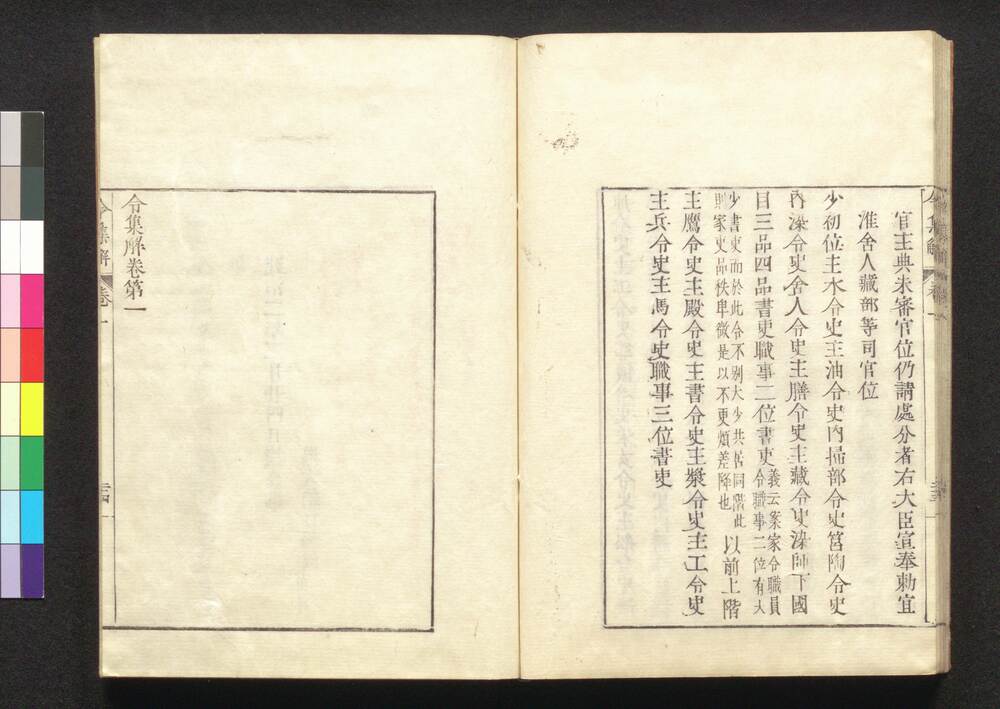 官主典未審官位仍請處分者右大臣宣奉勅宜
准舍人藏部等司官位
少初位主水令史主油令史內掃部令史筥陶令史
內染令史舍人令史主膳令史主藏令史染師下國
目三品四品書吏職事二位書吏
義云案家令職員
令職事二位有大
少書吏而於此令不別大少共居同階此
則家吏品秩卑微是以不更煩差降也
以前上階
主鷹令史主殿令史主書令史主漿令史主工令史
主兵令史主馬令史職事三位書史
令集解卷第一
令集解 卷一